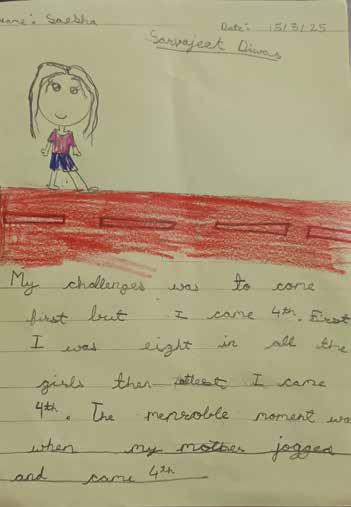 name: Saesha Date: 15/3/25
Sarvajeet Diwas
My challenges was to come
first but I came 4th. First
I was eight in all the
girls then atleest I came
4th. The memroble moment was
when my mother jogged
and came 4th